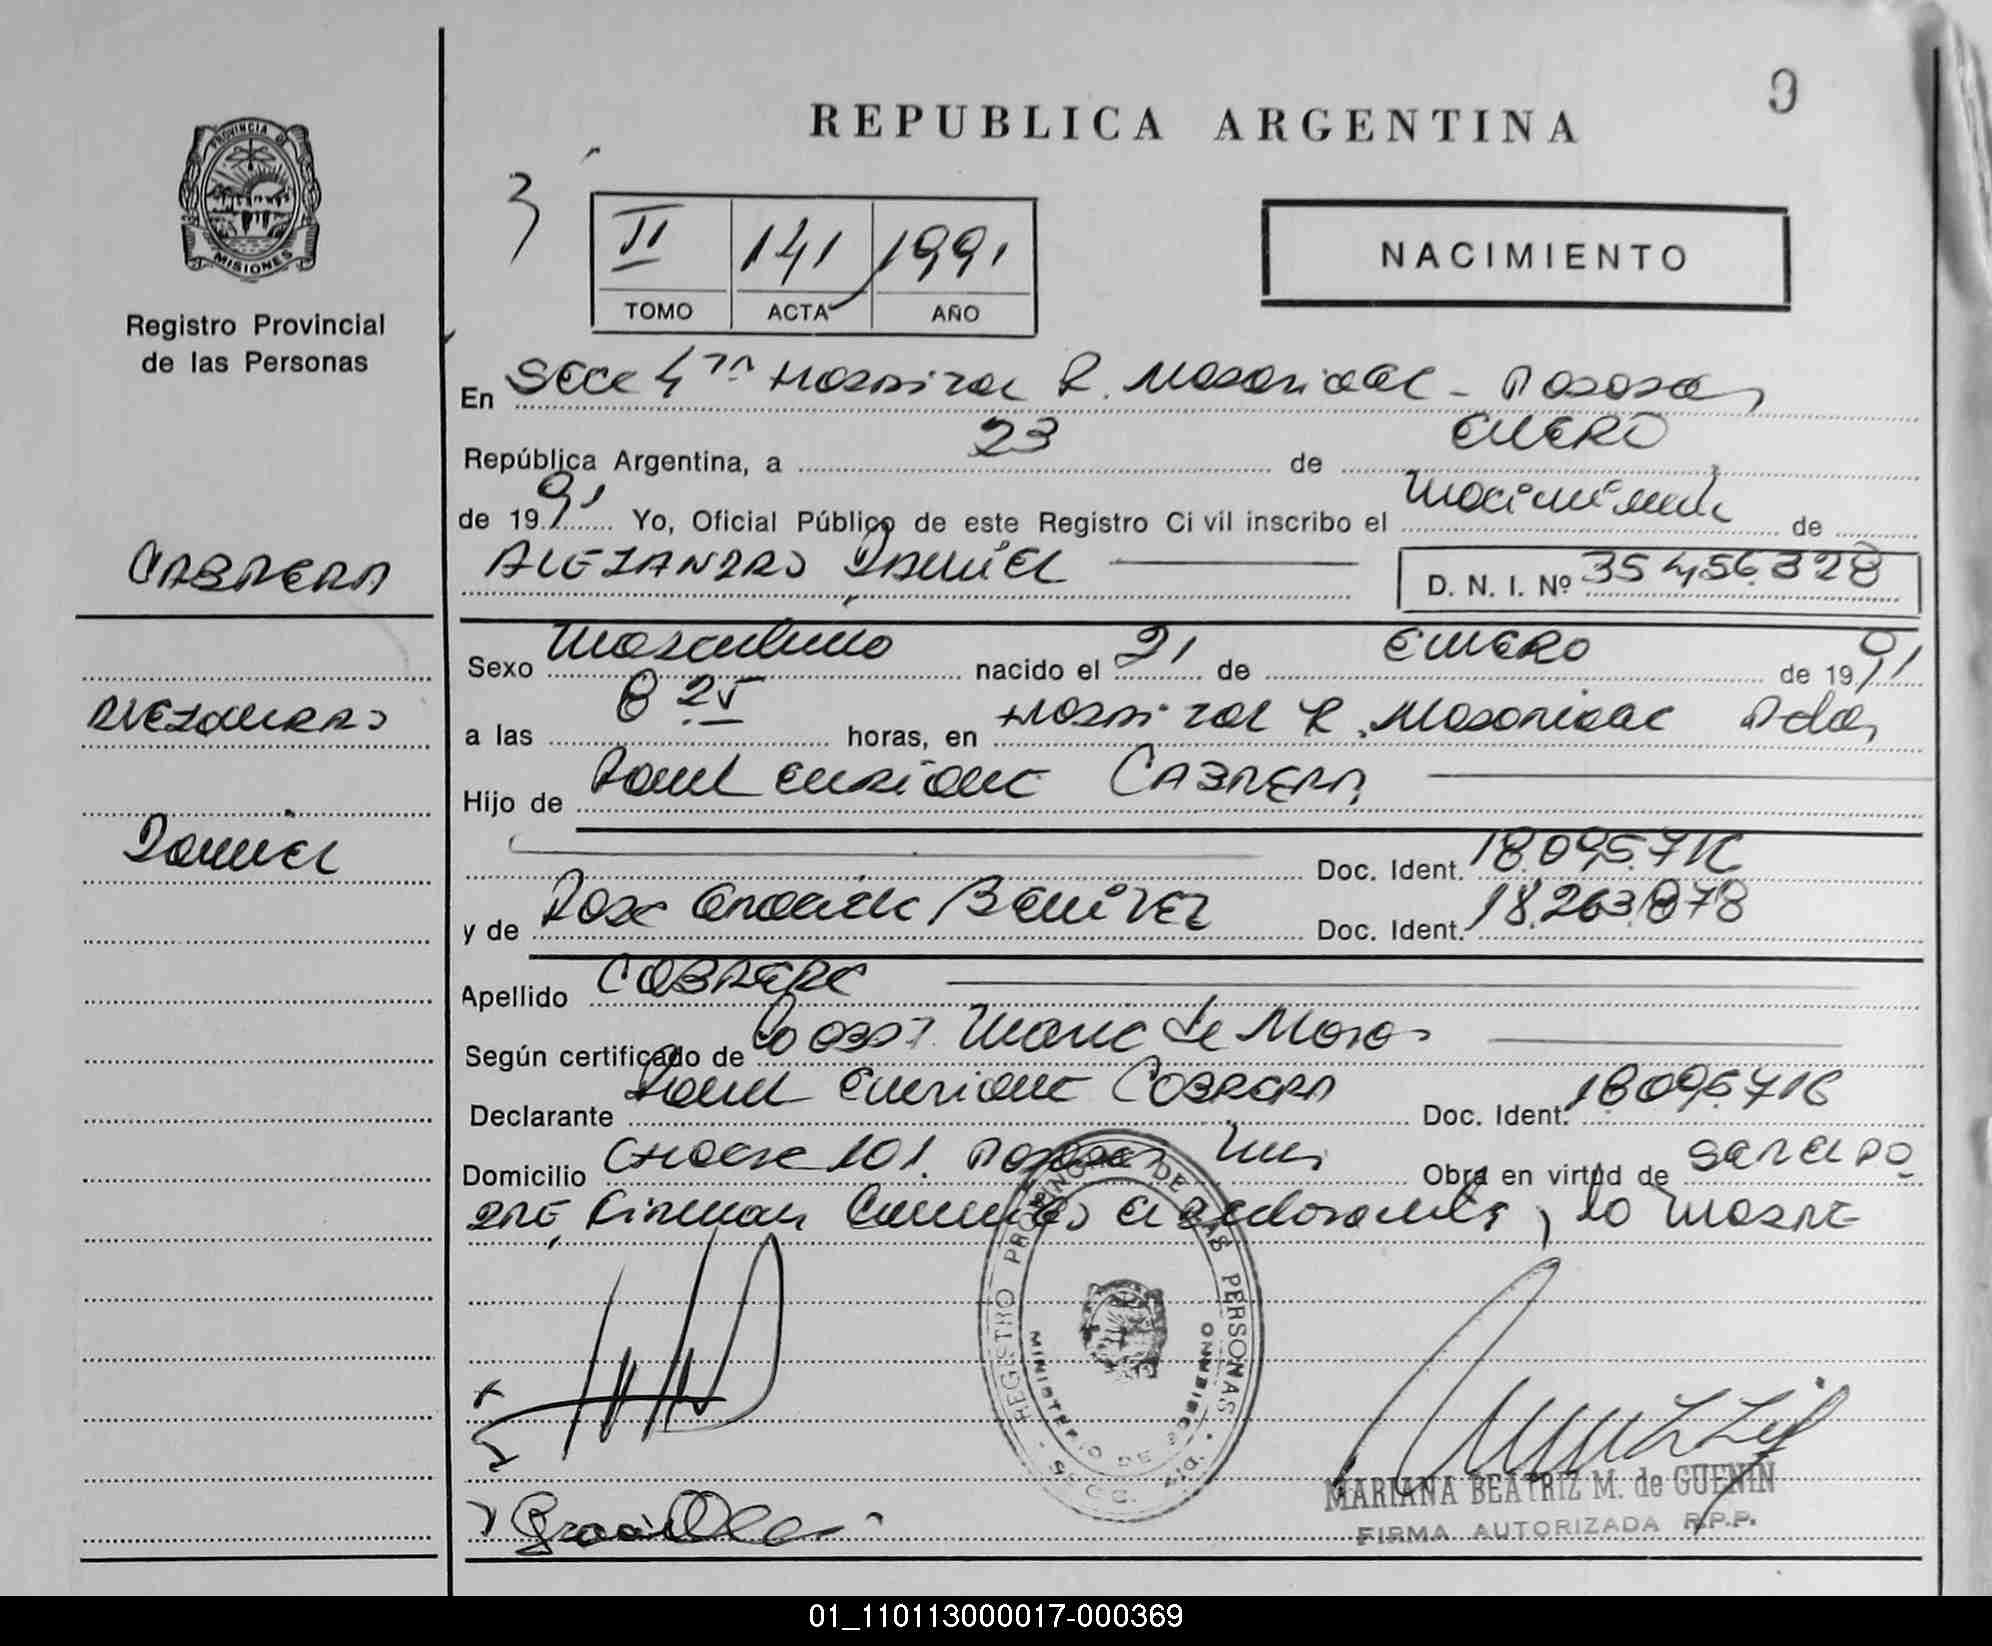 REPUBLICA ARGENTINA
PROVINCIA DE
MISIONES
Registro Provincial
de las Personas
3
II 141 1991
TOMO ACTA AÑO
NACIMIENTO
En Secc 4ta Hospital R. Madariaga - Posadas
República Argentina, a 23 de ENERO
de 1991 Yo, Oficial Público de este Registro Civil inscribo el Nacimiento de
CABRERA
ALEJANDRO DANIEL D. N. I. Nº 35.456.328
Sexo Masculino nacido el 21 de ENERO de 1991
ALEJANDRO
a las 8 25 horas, en Hospital R. Madariaga Pdas
Hijo de Raul Enrique CABRERA
DANIEL
Doc. Ident. 18.095.716
y de Rosa Graciela Benitez Doc. Ident. 18.263.878
Apellido CABRERA
Según certificado de Maria de
Declarante Raul Enrique CABRERA Doc. Ident. 18.095.716
Domicilio 101. Posadas Mnes Obra en virtud de ser el pa
dre, Firman Conmigo el declarante, la madre
REGISTRO PROVINCIAL DE LAS PERSONAS
MINISTERIO DE GOBIERNO
MARIANA BEATRIZ M. de GUENIN
FIRMA AUTORIZADA R.P.P.
01_110113000017-000369